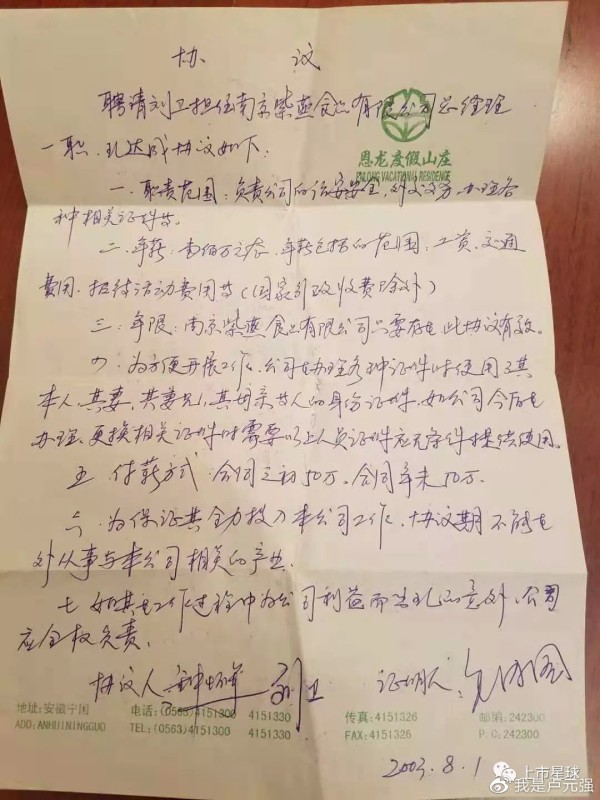 协 议
聘请刘卫担任南京紫燕食品有限公司总经理
恩龙度假山庄
ENLONG VACATIONAL RESIDENCE
一职,达成协议如下:
一、职责范围:负责公司的治安安全,外交公务,办理各
种相关证件等。
二、年薪:壹佰万元整,年薪包括的范围:工资、交通
费用、招待活动费用等(国家行政收费除外)
三、年限:南京紫燕食品有限公司只要存在此协议有效。
四、为方便开展工作,公司在办理各种证件时使用了其
本人,其妻,其妻兄,其母亲等人的身份证件,如公司今后在
办理、更换相关证件时需要以上人员证件应无条件提供使用。
五、付薪方式:合同之初50万,合同年末50万。
六、为保证其全力投入本公司工作,协议期不能在
外从事与本公司相关的产业。
七、如其在工作过程中为公司利益而出现的意外,公司
应全权负责。
协议人 钟怀军 刘卫 证明人:
地址:安徽宁国 电话:(0563)4151300 4151330 传真:4151326 邮编:242300
ADD:ANHUININGGUO TEL:(0563)4151300 4151330 FAX:4151326 P.C:242300
2003.8.1
上市星球
@我是卢元强